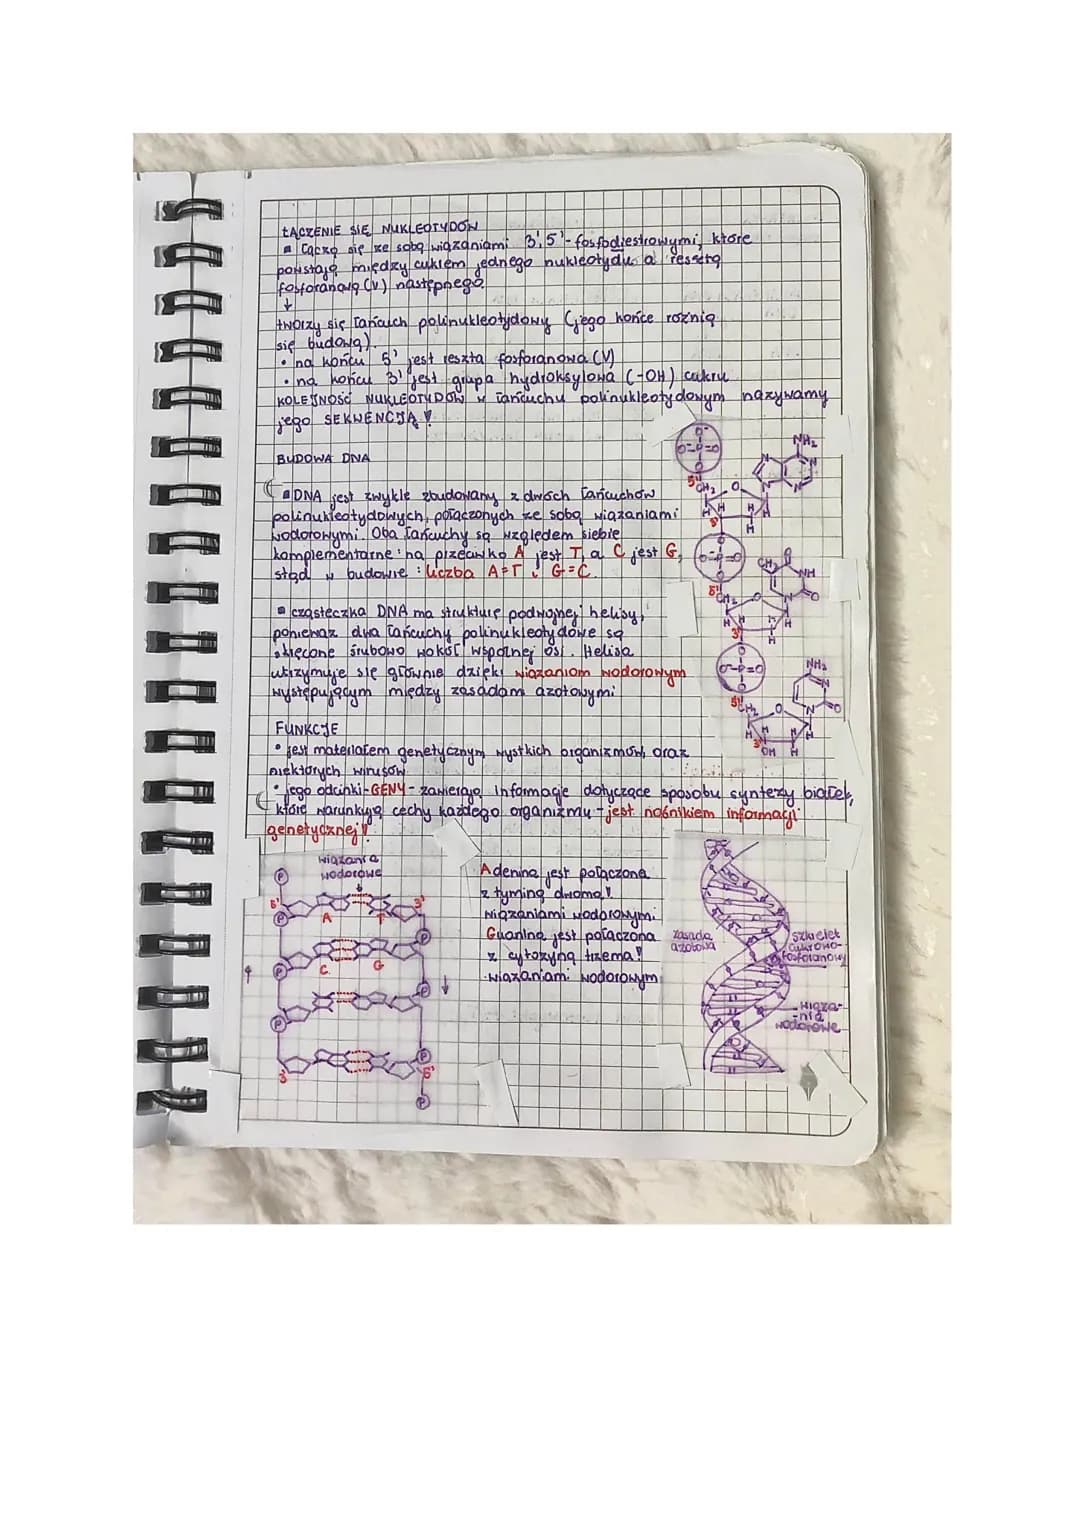 ŁĄCZENIE SIĘ NUKLEOTYDÓW
łączą się ze sobą wiązaniami 3',5'-fosfodiestrowymi, które
powstają między cukrem jednego nukleotydu a resztą
fosforanową (V) następnego.
↓
tworzy się łańcuch polinukleotydowy (jego końce różnią
się budową).
• na końcu 5' jest reszta fosforanowa (V)
• na końcu 3' jest grupa hydroksylowa (-OH) cukru
KOLEJNOŚĆ NUKLEOTYDÓW w łańcuchu polinukleotydowym nazywamy
jego SEKWENCJĄ!
BUDOWA DNA
DNA jest zwykle zbudowany z dwóch łańcuchów
polinukleotydowych, połączonych ze sobą wiązaniami
wodorowymi. Oba łańcuchy są względem siebie
komplementarne: na przeciwko A jest T, a C jest G,
stąd w budowie: liczba A=T i G=C.
cząsteczka DNA ma strukturę podwójnej helisy,
ponieważ dwa łańcuchy polinukleotydowe są
skręcone śrubowo wokół wspólnej osi. Helisa
utrzymuje się głównie dzięki wiązaniom wodorowym
występującym między zasadam azotowymi.
FUNKCJE
• jest materiałem genetycznym wystkich organizmów, oraz
niektórych wirusów
• jego odcinki-GENY- zawierają informacje dotyczące sposobu syntezy białek,
które warunkują cechy każdego organizmu - jest nośnikiem informacji
genetycznej!
wiązania
wodorowe
P
5'
3'
A
T
P
P
C
G
P
P
P
P
3'
5'
P
Adenina jest połączona
z tyminą dwoma!
wiązaniami wodorowymi
Guanina jest połączona
z cytozyną trzema!
wiązaniami wodorowym
zasada
azotowa
szkielet
cukrowo-
fosforanowy
wiąza-
-nia
wodorowe
O⁻
O⁻-P=O
O
5'
CH₂
O
NH₂
N
N
N
N
H
H
H
H
3'
O
O⁻-P=O
O
5'
CH₂
O
CH₃
O
NH
N
O
H
H
H
H
3'
O
O⁻-P=O
O
5'
CH₂
O
NH₂
N
N
O
H
H
H
H
3'
OH
H